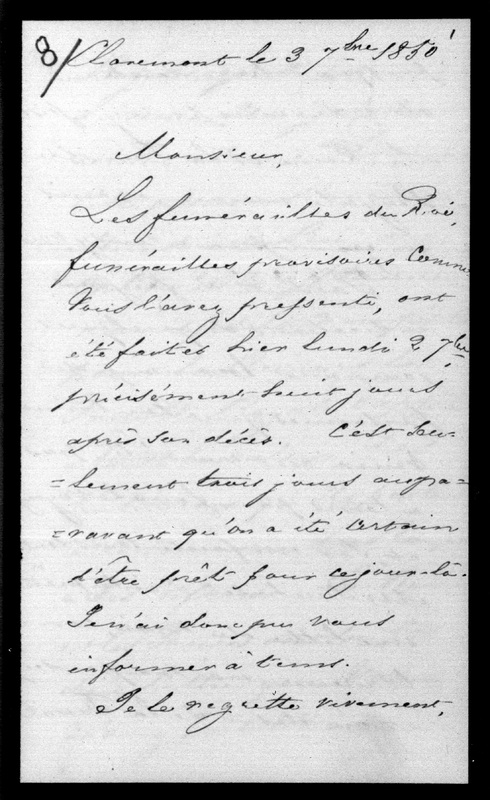 8/ Claremont le 3 7bre 1850
Monsieur,
Les funérailles du Roi,
funérailles provisoires comme
Vous l'avez pressenti, ont
été faites hier lundi 2 7bre
précisément huit jours
après son décès. C'est seu-
=lement trois jours aupa=
=ravant qu'on a été certain
d'être prêt pour ce jour-là.
Je n'ai donc pu vous
informer à tems.
Je le regrette vivement,